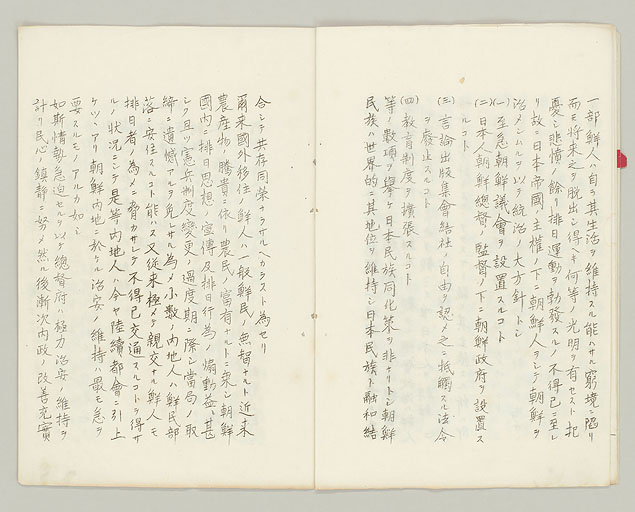 一部鮮人ハ自ラ其生活ヲ維持スル能ハサル窮境ニ陥リ
而モ将来之ヲ脱出シ得ヘキ何等ノ光明ヲ有セスト
憂シ悲憤ノ餘リ排日運動ヲ勃發スルノ不得已ニ至レ
リ故ニ日本帝國ノ主權ノ下ニ朝鮮人ヲシテ朝鮮ヲ
治メシムルヲ以テ統治ノ大方針トシ
(一)至急朝鮮議會ヲ設置スルコト
(二)日本人朝鮮總督ノ監督ノ下ニ朝鮮政府ヲ設置ス
ルコト
(三)言論出版集會結社ノ自由ヲ認メ之ニ抵觸スル法令
ヲ廢止スルコト
(四)教育制度ヲ擴張スルコト
等ノ數項ヲ擧ケ日本民族同化策ヲ非ナリトシ朝鮮
民族ハ世界的ニ其地位ヲ維持シ日本民族ト融和結
合シテ共存同榮ナラサルヘカラスト為セリ
爾来國外移住ノ鮮人ハ一般鮮民ノ無智ナルト近来
農産物ノ騰貴ニ依リ農民ノ富有ナルトニ乘シ朝鮮
國内ニ排日思想ノ宣傳及排日行為ノ煽動益々甚
シク且ツ憲兵制度變更ノ過度期ニ際シ當局ノ取
締ニ遺憾アルヲ免レサル為メ小數ノ内地人ハ鮮民部
落ニ安住スルコト能ハス又従来極メテ親交アル鮮人モ
排日者ノ為メニ脅カサレテ不得已交通スルコトヲ得サ
ルノ状況ニシテ是等内地人ハ今ヤ陸續都會ニ引上
ケツヽアリ朝鮮内地ニ於ケル治安ノ維持ハ最モ急ヲ
要スルモノアルカ如シ
如斯情勢急迫セルヲ以テ總督府ハ極力治安ノ維持ヲ
計リ民心ノ鎮静ニ努メ然ル後漸次内政ノ改善充實